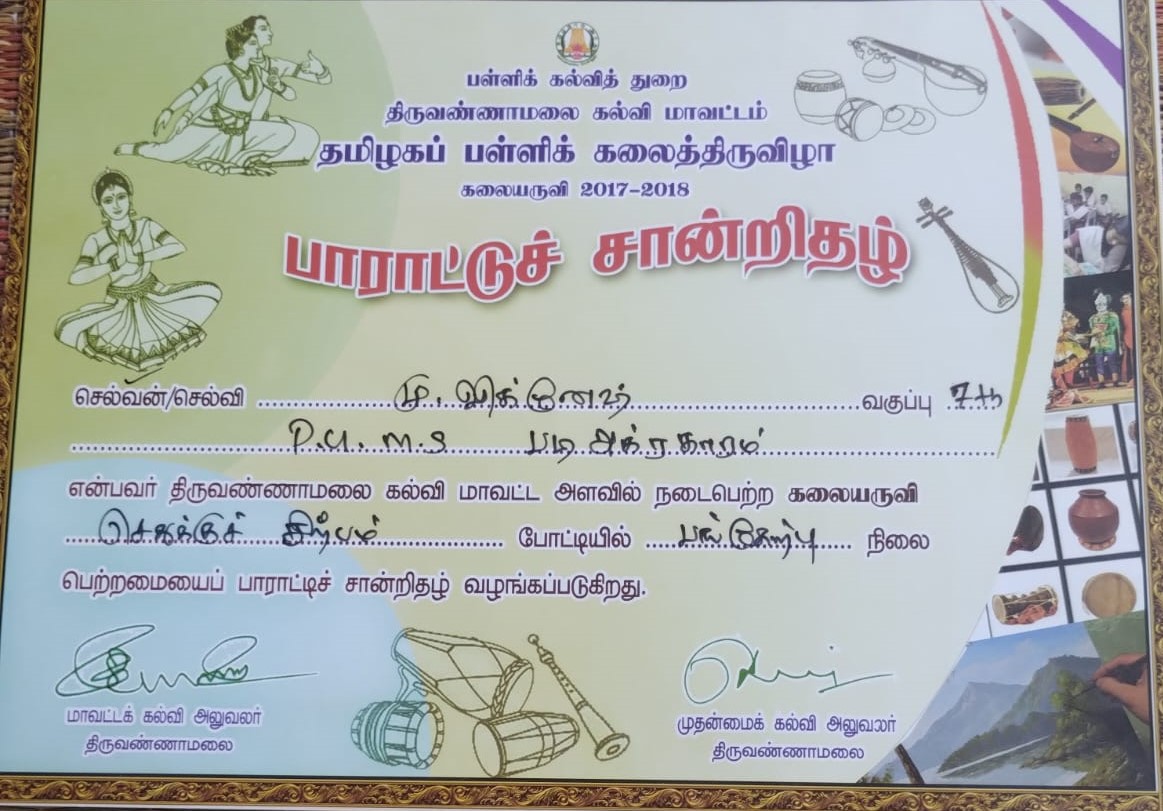 பள்ளிக் கல்வித் துறை
திருவண்ணாமலை கல்வி மாவட்டம்
தமிழகப் பள்ளிக் கலைத்திருவிழா
கலையருவி 2017-2018
பாராட்டுச் சான்றிதழ்
செல்வன்/செல்வி மு. விக்னேஷ் வகுப்பு 7th
P.U.M.S படி அக்ரகாரம்
என்பவர் திருவண்ணாமலை கல்வி மாவட்ட அளவில் நடைபெற்ற கலையருவி
செதுக்குச் சிற்பம் போட்டியில் பங்கேற்பு நிலை
பெற்றமையைப் பாராட்டிச் சான்றிதழ் வழங்கப்படுகிறது.
மாவட்டக் கல்வி அலுவலர் முதன்மைக் கல்வி அலுவலர்
திருவண்ணாமலை திருவண்ணாமலை